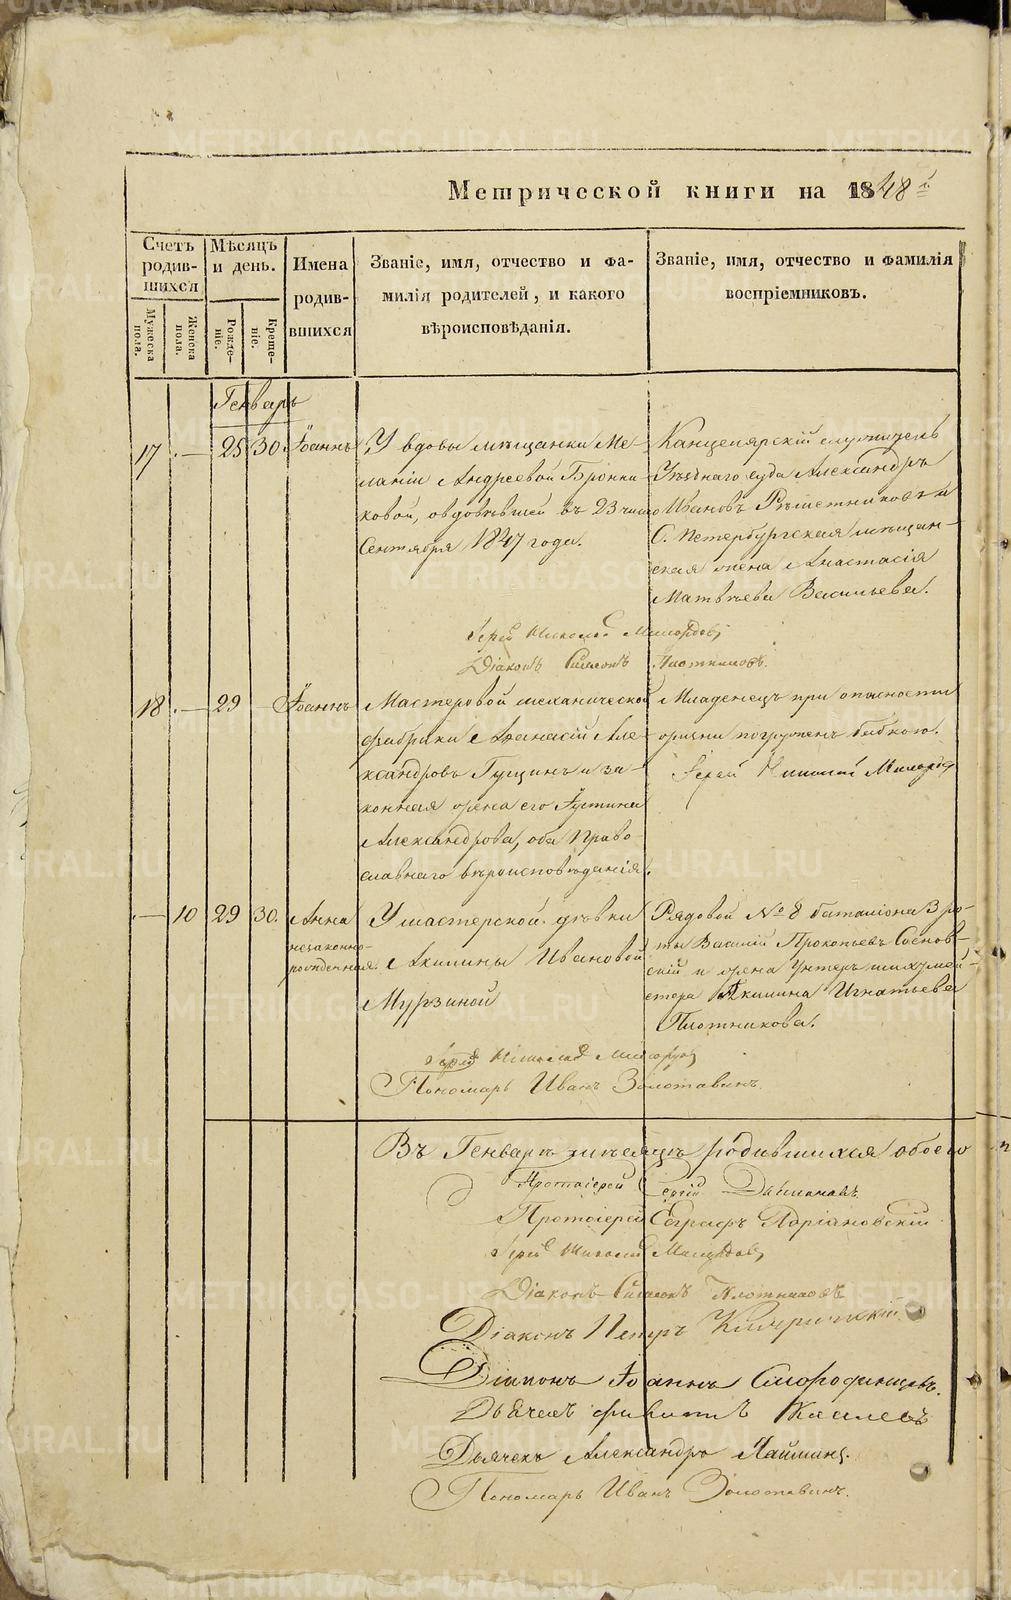 Метрической книги на 1848й
Счетъ родив-шихся
Мѣсяцъ и день.
Имена родив-вшихся
Званіе, имя, отчество и фа-
милія родителей, и какого
вѣроисповѣданія.
Званіе, имя, отчество и фамилія
воспріемниковъ.
Мужеска пола.
Женска пола.
Рожде-ніе.
Креще-ніе.
Генварь
17 — 25 30 Іоаннъ
У вдовы мѣщанки Ме-
ланіи Андреевой Бронни-
ковой, овдовѣвшей въ 23 число
Сентября 1847 года.
Канцелярскій служитель
Уѣзднаго суда Александръ
Ивановъ Рѣшетниковъ и
С. Петербургская мѣщан-
ская жена Анастасія
Матвѣева Васильева.
Іерей Николай
Діаконъ Симеонъ Плотниковъ.
18 — 29 Іоаннъ
Мастеровой механической
фабрики Аѳанасій Але-
ксандровъ Гущинъ и за-
конная жена его Іустина
Александрова, оба Право-
славнаго вѣроисповѣданія.
Младенецъ при опасности
жизни погруженъ бабкою.
Іерей Николай
— 10 29 30. Анна
незаконно-
рожденная
У мастерской дѣвки
Акилины Ивановой
Мурзиной
Рядовой № 8 баталіона 3 ро-
ты Василій Прокопьевъ Соснов-
скій и жена Унтеръ-шихмей-
стера Акилина Игнатьева
Плотникова.
Іерей Николай
Пономарь Иванъ Золотавинъ.
Въ Генварѣ мѣсяцѣ родившихся обоего
Протоіерей Сергій
Протоіерей Евграфъ Адріановскій
Іерей Николай
Діаконъ Симеонъ Плотниковъ
Діаконъ Петръ
Діаконъ Іоаннъ Смородинцевъ.
Дьячекъ
Дьячекъ Александръ
Пономарь Иванъ Золотавинъ.
METRIKI.GASO-URAL.RU